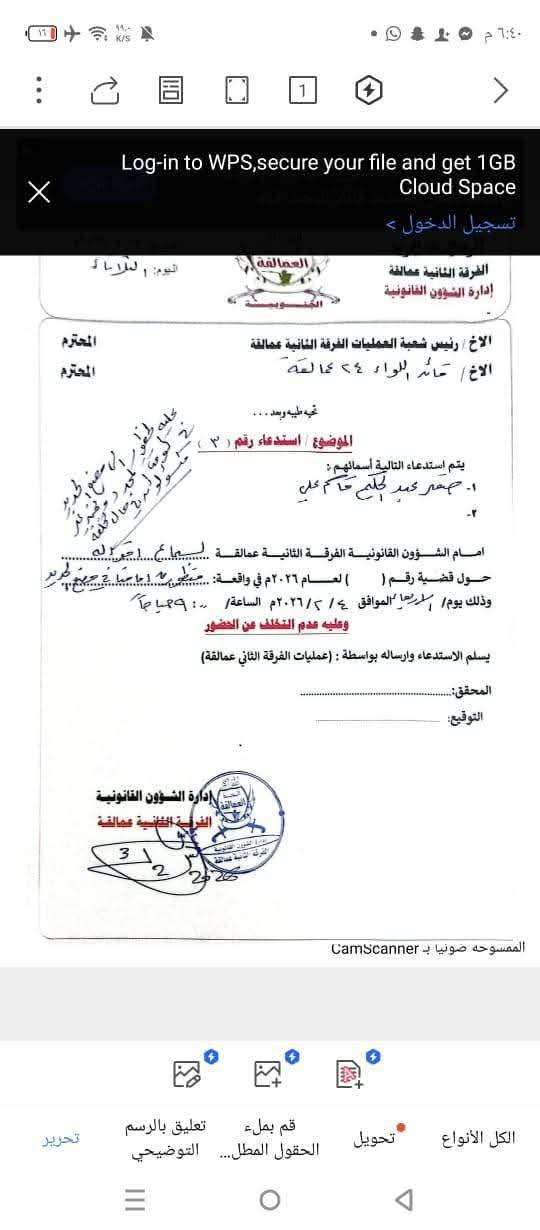 ٦:٤٠ م
٩٩,٠
K/S
١٦
1
Log-in to WPS,secure your file and get 1GB
Cloud Space
تسجيل الدخول >
العمالقة
الجنوبية
الفرقة الثانية عمالقة
إدارة الشؤون القانونية
اليوم: الثلاثاء
الاخ/ رئيس شعبة العمليات الفرقة الثانية عمالقة المحترم
الاخ/ قائد اللواء ٢٤ عمالقة المحترم
تحيه طيبه وبعد...
الموضوع / استدعاء رقم ( ٣ )
يتم استدعاء التالية أسمائهم:
١- صقر عبد الحكيم قاسم علي
٢-
امام الشؤون القانونية الفرقة الثانية عمالقة لسماع أقواله
حول قضية رقم ( ) لعام ٢٠٢٦م في واقعة:
وذلك يوم/ الاربعاء الموافق ٢٠٢٦/٢/٤م الساعة/ ٩:٠٠ صباحاً
وعليه عدم التخلف عن الحضور
يسلم الاستدعاء وارساله بواسطة : (عمليات الفرقة الثاني عمالقة)
المحقق:
التوقيع:
إدارة الشؤون القانونية
الفرقة الثانية عمالقة
العمالقة
إدارة الشؤون القانونية
الفرقة الثانية عمالقة
3
2
2026
الممسوحه ضوئيا بـ CamScanner
الكل الأنواع
تحويل
قم بملء
الحقول المطل...
تعليق بالرسم
التوضيحي
تحرير